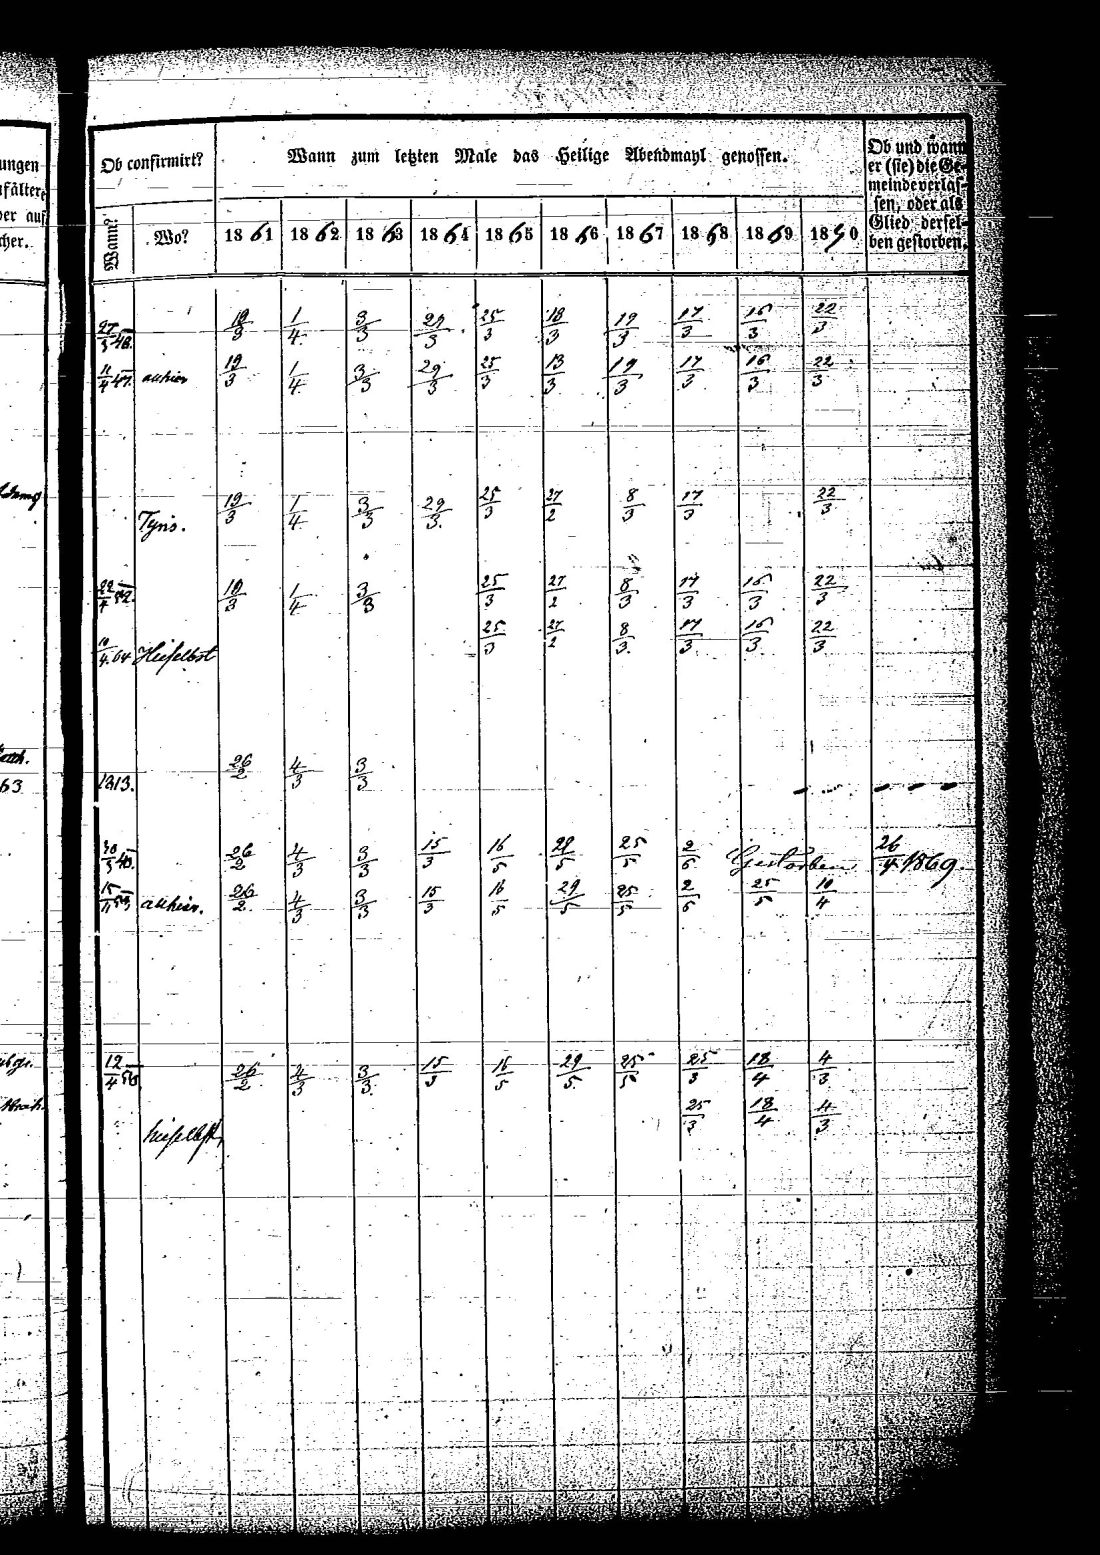 ungen
fälter
er auf
cher.
Ob confirmirt? Wann zum letzten Male das Heilige Abendmahl genossen. Ob und wann er (sie) die Ge-
meinde verlas-
sen, oder als
Glied dersel-
ben gestorben.
Wann? Wo? 1861 1862 1863 1864 1865 1866 1867 1868 1869 1870
27/3 48. 19/3 1/4 3/3 29/3 25/3 18/3 19/3 17/3 16/3 22/3
11/4 47. allhier 19/3 1/4 3/3 29/3 25/3 13/3 19/3 17/3 16/3 22/3
Tyris. 19/3 1/4 3/3 29/3. 25/3 27/2 8/3 17/3 22/3
22/4 52. 19/3 1/4 3/3 25/3 27/2 8/3 17/3 16/3 22/3
19/4. 64 Hieselbst 25/3 27/2 8/3. 17/3 16/3 22/3
63 1813. 26/2 4/3 3/3
30/3 40. 26/2 4/3 3/3 15/3 16/5 29/5 25/5 2/6 Gestorben 26/4 1869.
15/11 53 allhier. 26/2. 4/3 3/3 15/3 16/5 29/5 25/5 2/6 25/5 10/4
12/4 56 26/2 4/3 3/3. 15/3 16/5 29/5. 25/5 25/3 18/4 4/3
25/3 18/4 4/3
hieselbst,